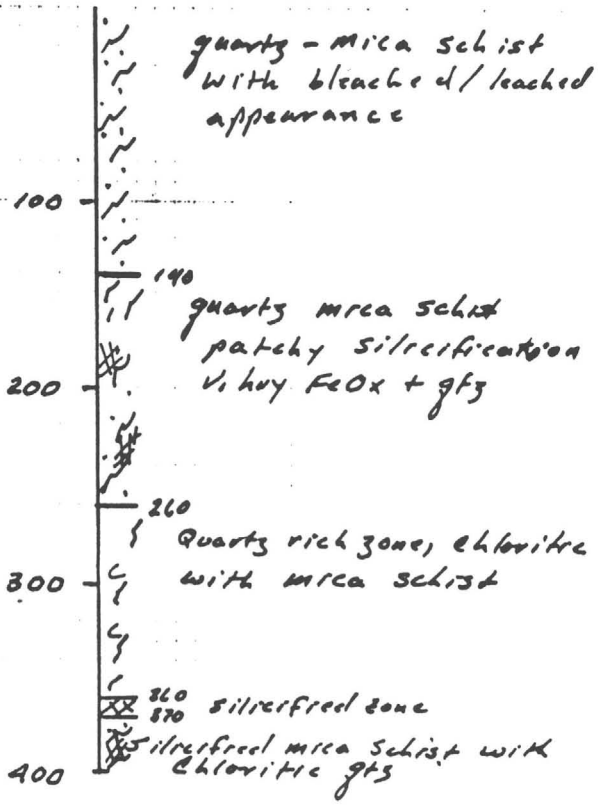 quartz - mica schist
with bleached/leached
appearance
100
140
quartz mica schist
patchy silicification
v. hvy FeOx + qtz
200
260
Quartz rich zone, chloritic
with mica schist
300
360
silicified zone
370
silicified mica schist with
chloritic qtz
400